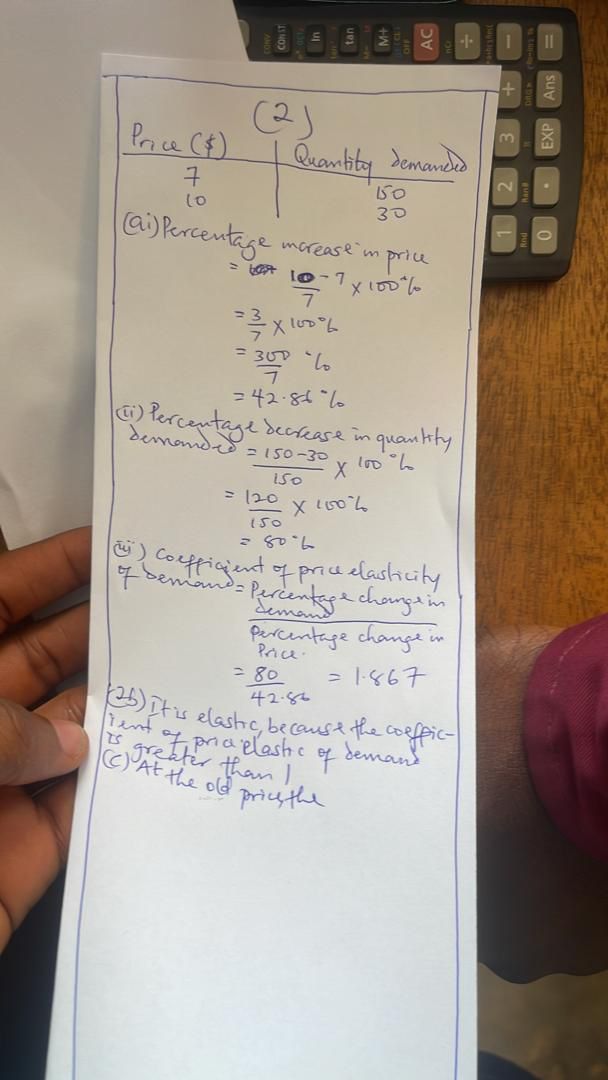 CONV CONST ln tan M+ AC ÷ − =
OFF
+ Ans
3 EXP
2 Ran# .
1 Rnd 0
(2)
Price ($) Quantity demanded
7 150
10 30
(ai) Percentage increase in price
= 10-7/7 × 100%
= 3/7 × 100%
= 300/7 %
= 42.86%
(ii) Percentage decrease in quantity
demanded = 150-30/150 × 100%
= 120/150 × 100%
= 80%
(iii) Coefficient of price elasticity
of demand = Percentage change in
demand
Percentage change in
Price.
= 80/42.86 = 1.867
(2b) it is elastic, because the coeffic-
ient of price elastic of demand
is greater than 1
(c) At the old price, the